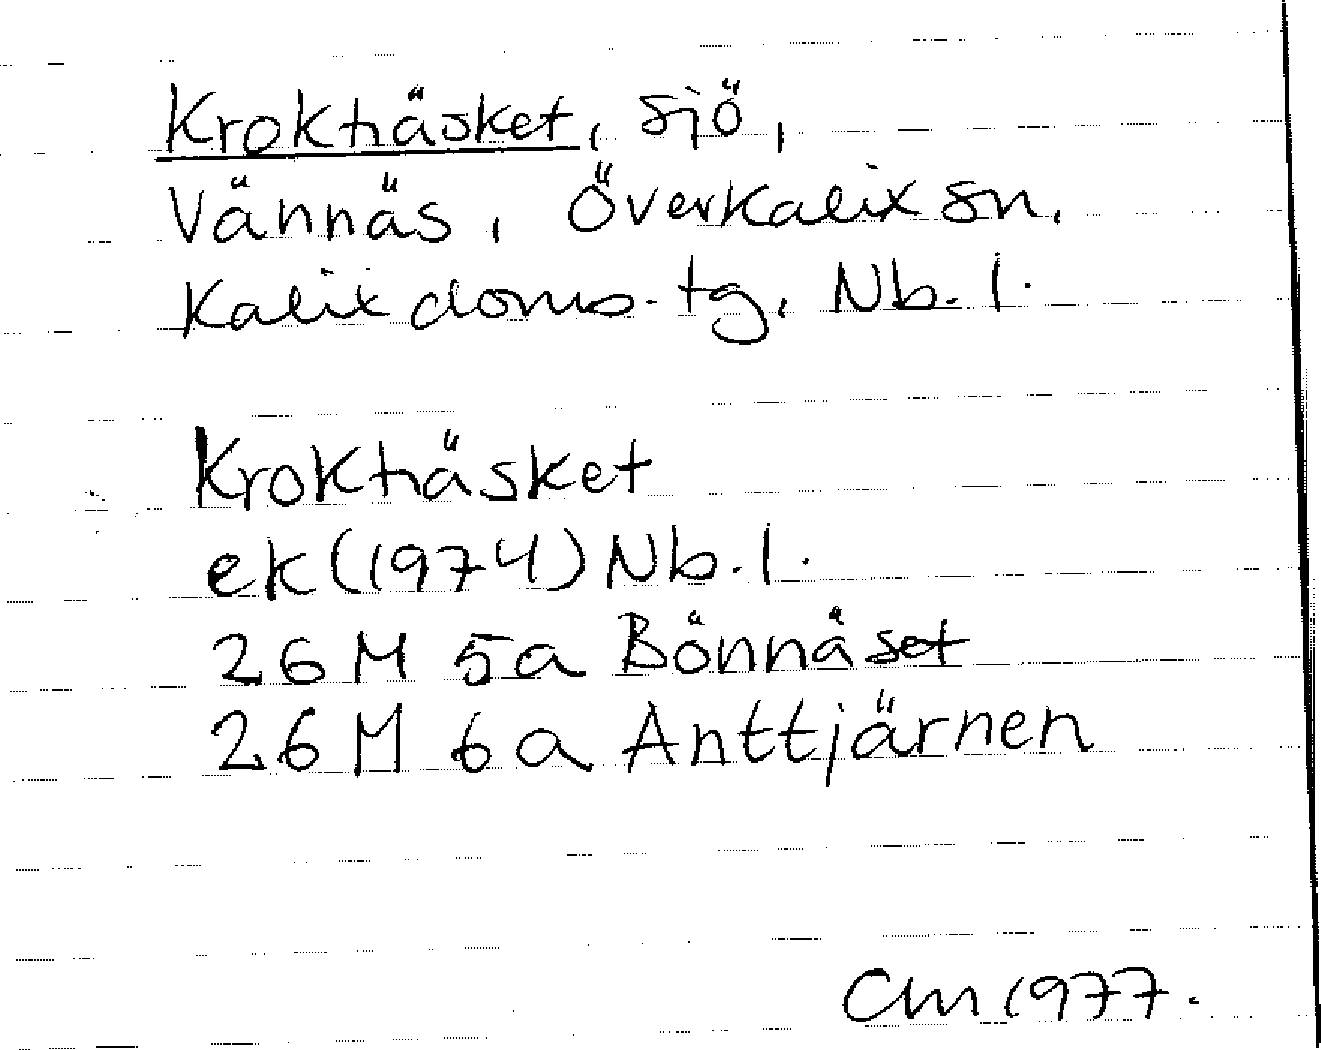 Krokträsket, sjö,
Vännäs, Överkalix sn.
Kalix doms.tg. Nb.l.
Krokträsket
ek (1974) Nb.l.
26M 5a Bönnåset
26M 6a Anttjärnen
CM 1977.